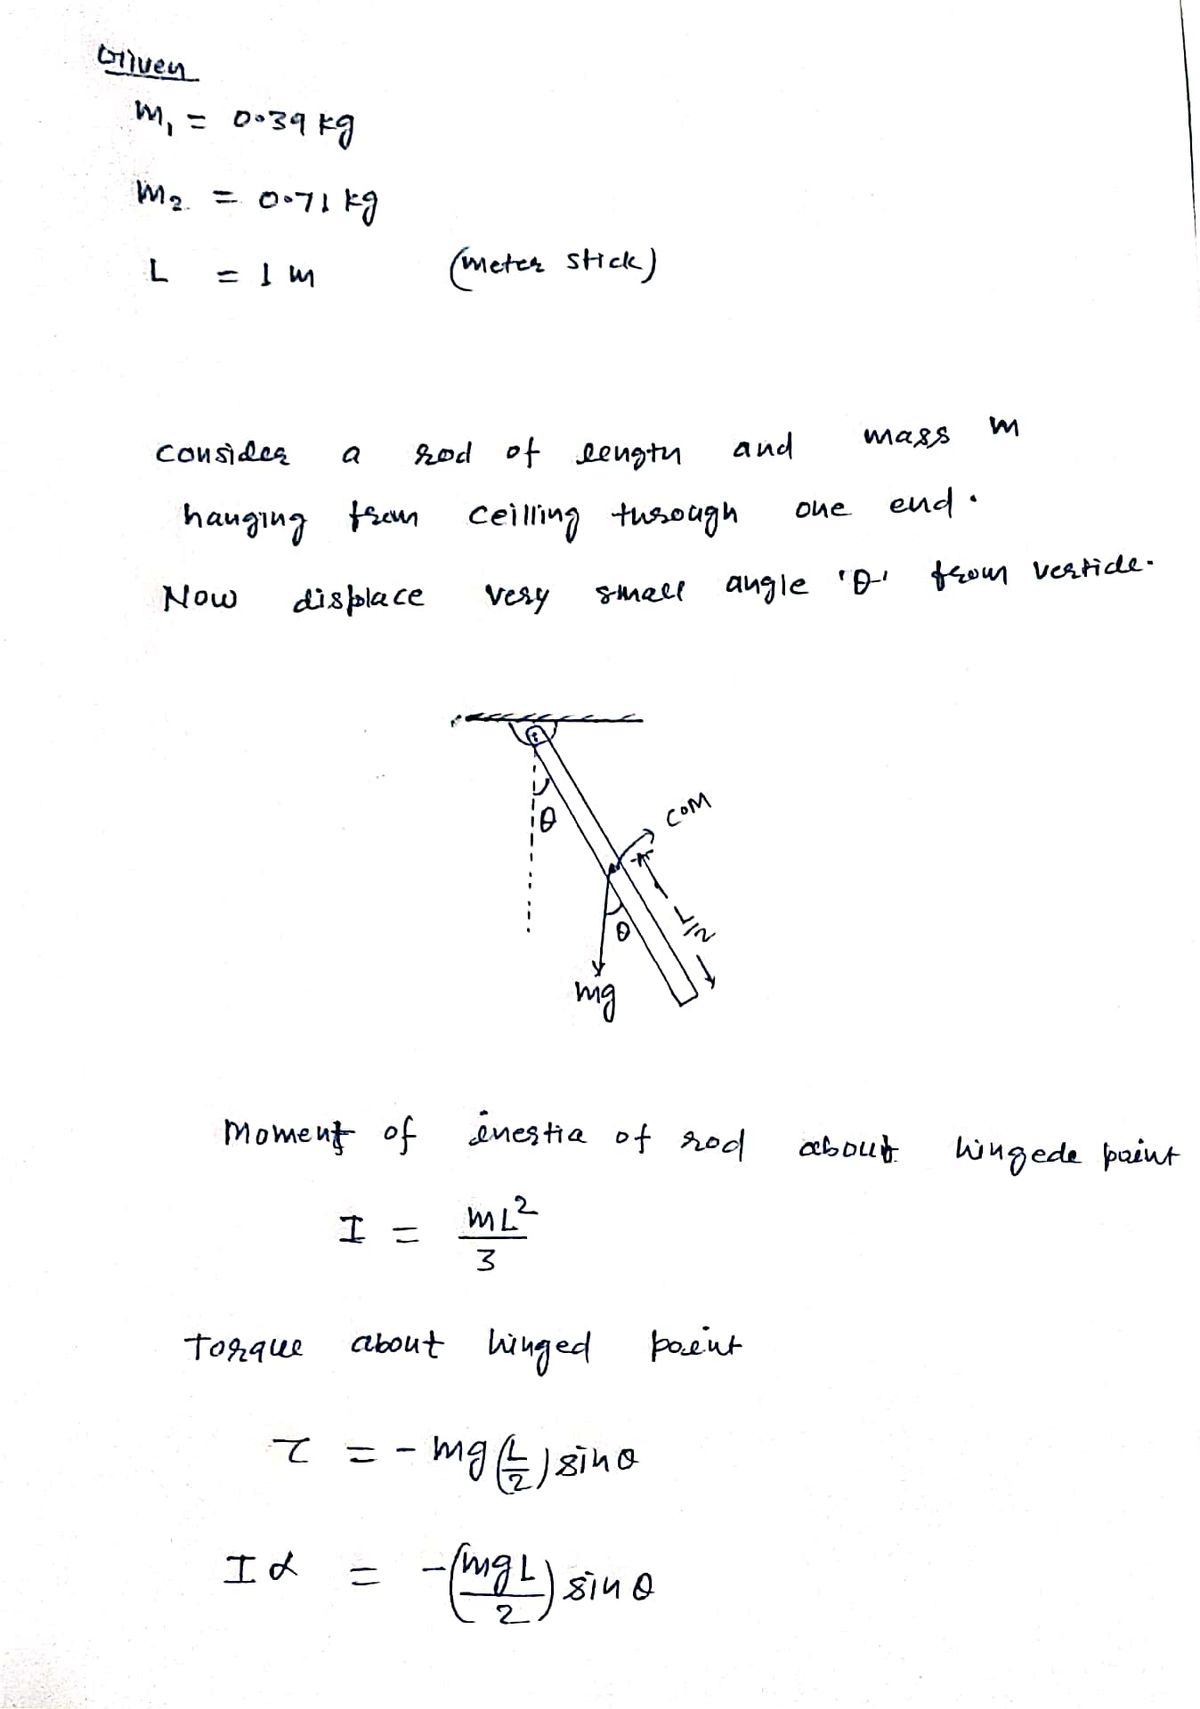 Given
m₁ = 0.39 kg
m₂ = 0.71 kg
L = 1 m (meter stick)
consider a rod of length and mass m
hanging from ceilling through one end.
Now displace very small angle 'θ' from verticle.
θ
COM
L/2
θ
mg
Moment of inertia of rod about hingede point
I = mL²/3
Torque about hinged point
τ = - mg(L/2) sinθ
Iα = -(mgL/2) sinθ